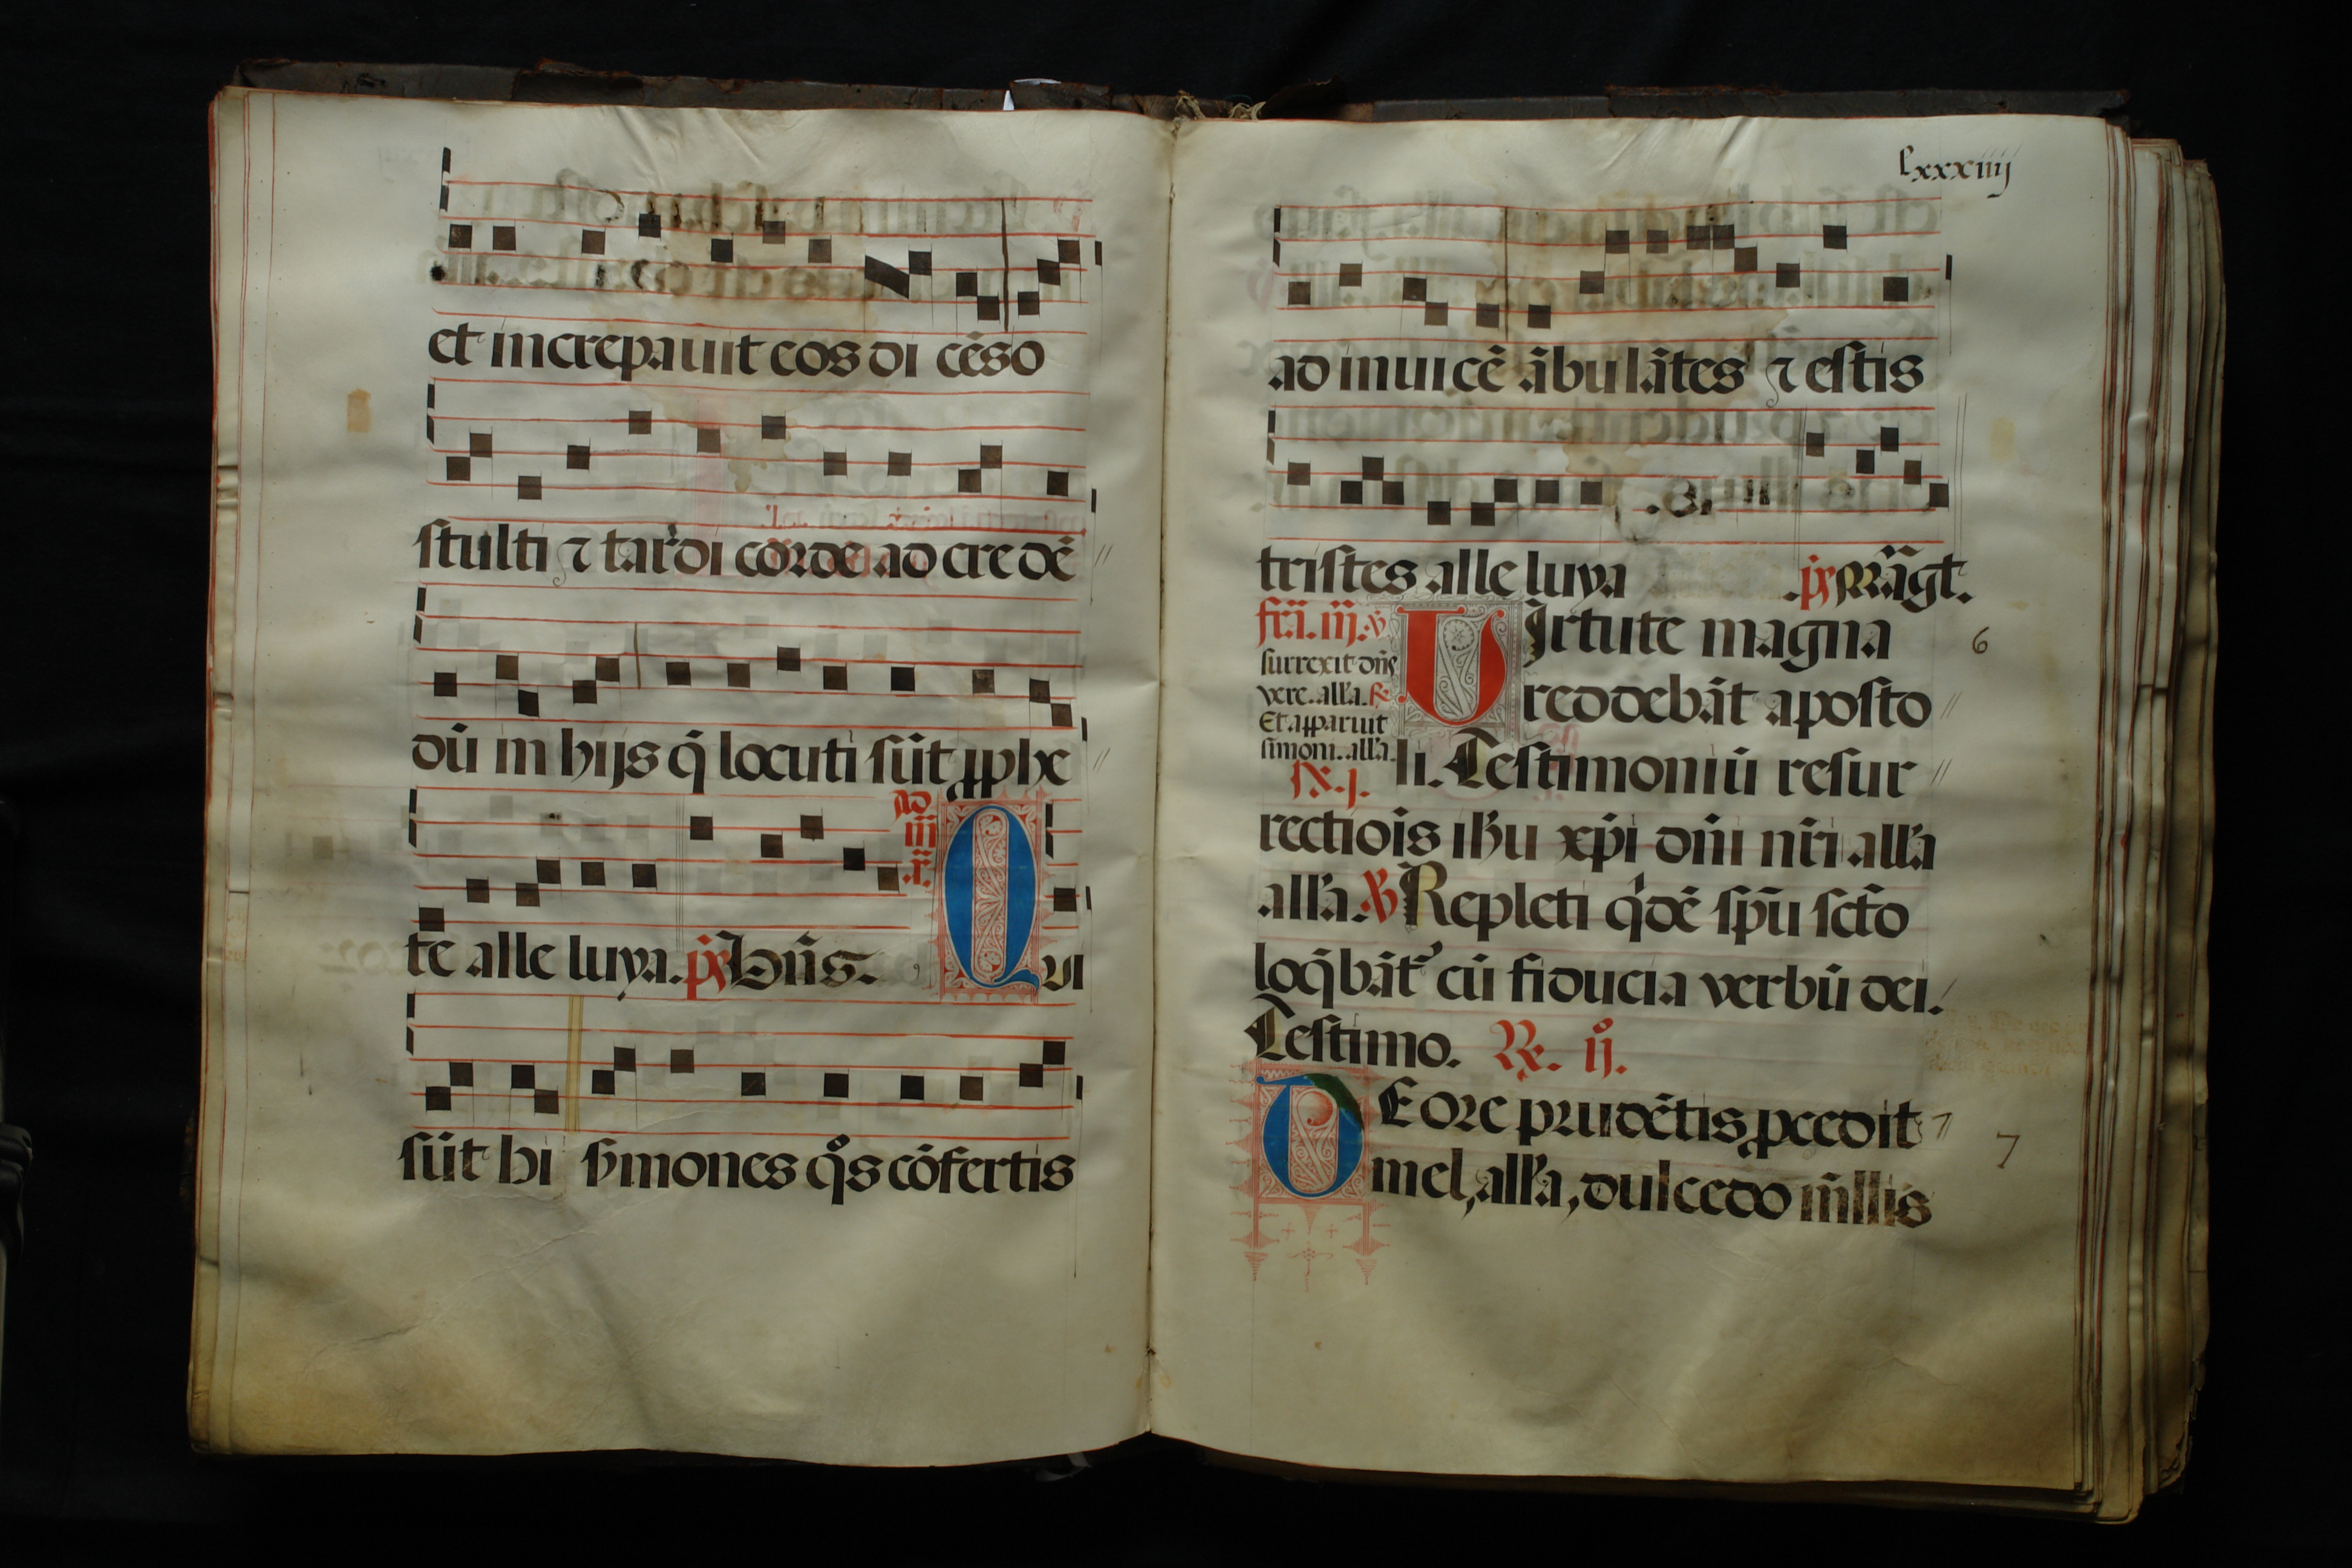 et increpauit eos di cẽso
stulti ⁊ tardi corde ad cre dẽ
dũ in hijs q̃ locuti sũt ꝓphe
ad
iij
r̃.
te alle luya. ps Bñs. QUI
sũt hi ẜmones qͦs cõfertis
lxxxiiij
ad inuicẽ ãbulãtes ⁊ estis
tristes alle luya .ps Mãgt.
fr̃a. iij. v̇
surrexit dñs
vere. all'a. ℟
Et apparuit
simoni. all'a.
℟. j.
UIrtute magna
6
reddebãt aposto
li. Testimoniũ resur
rectiõis ihu xp̃i dñi nr̃i all'a
all'a. ℣ Repleti qͥdẽ sp̃u sctõ
loq̃bãt᷑ cũ fiducia verbũ dei.
Testimo. ℟. ijͦ.
DE ore prudẽtis ꝓcedit
7
mel, all'a, dulcedo mĩllis